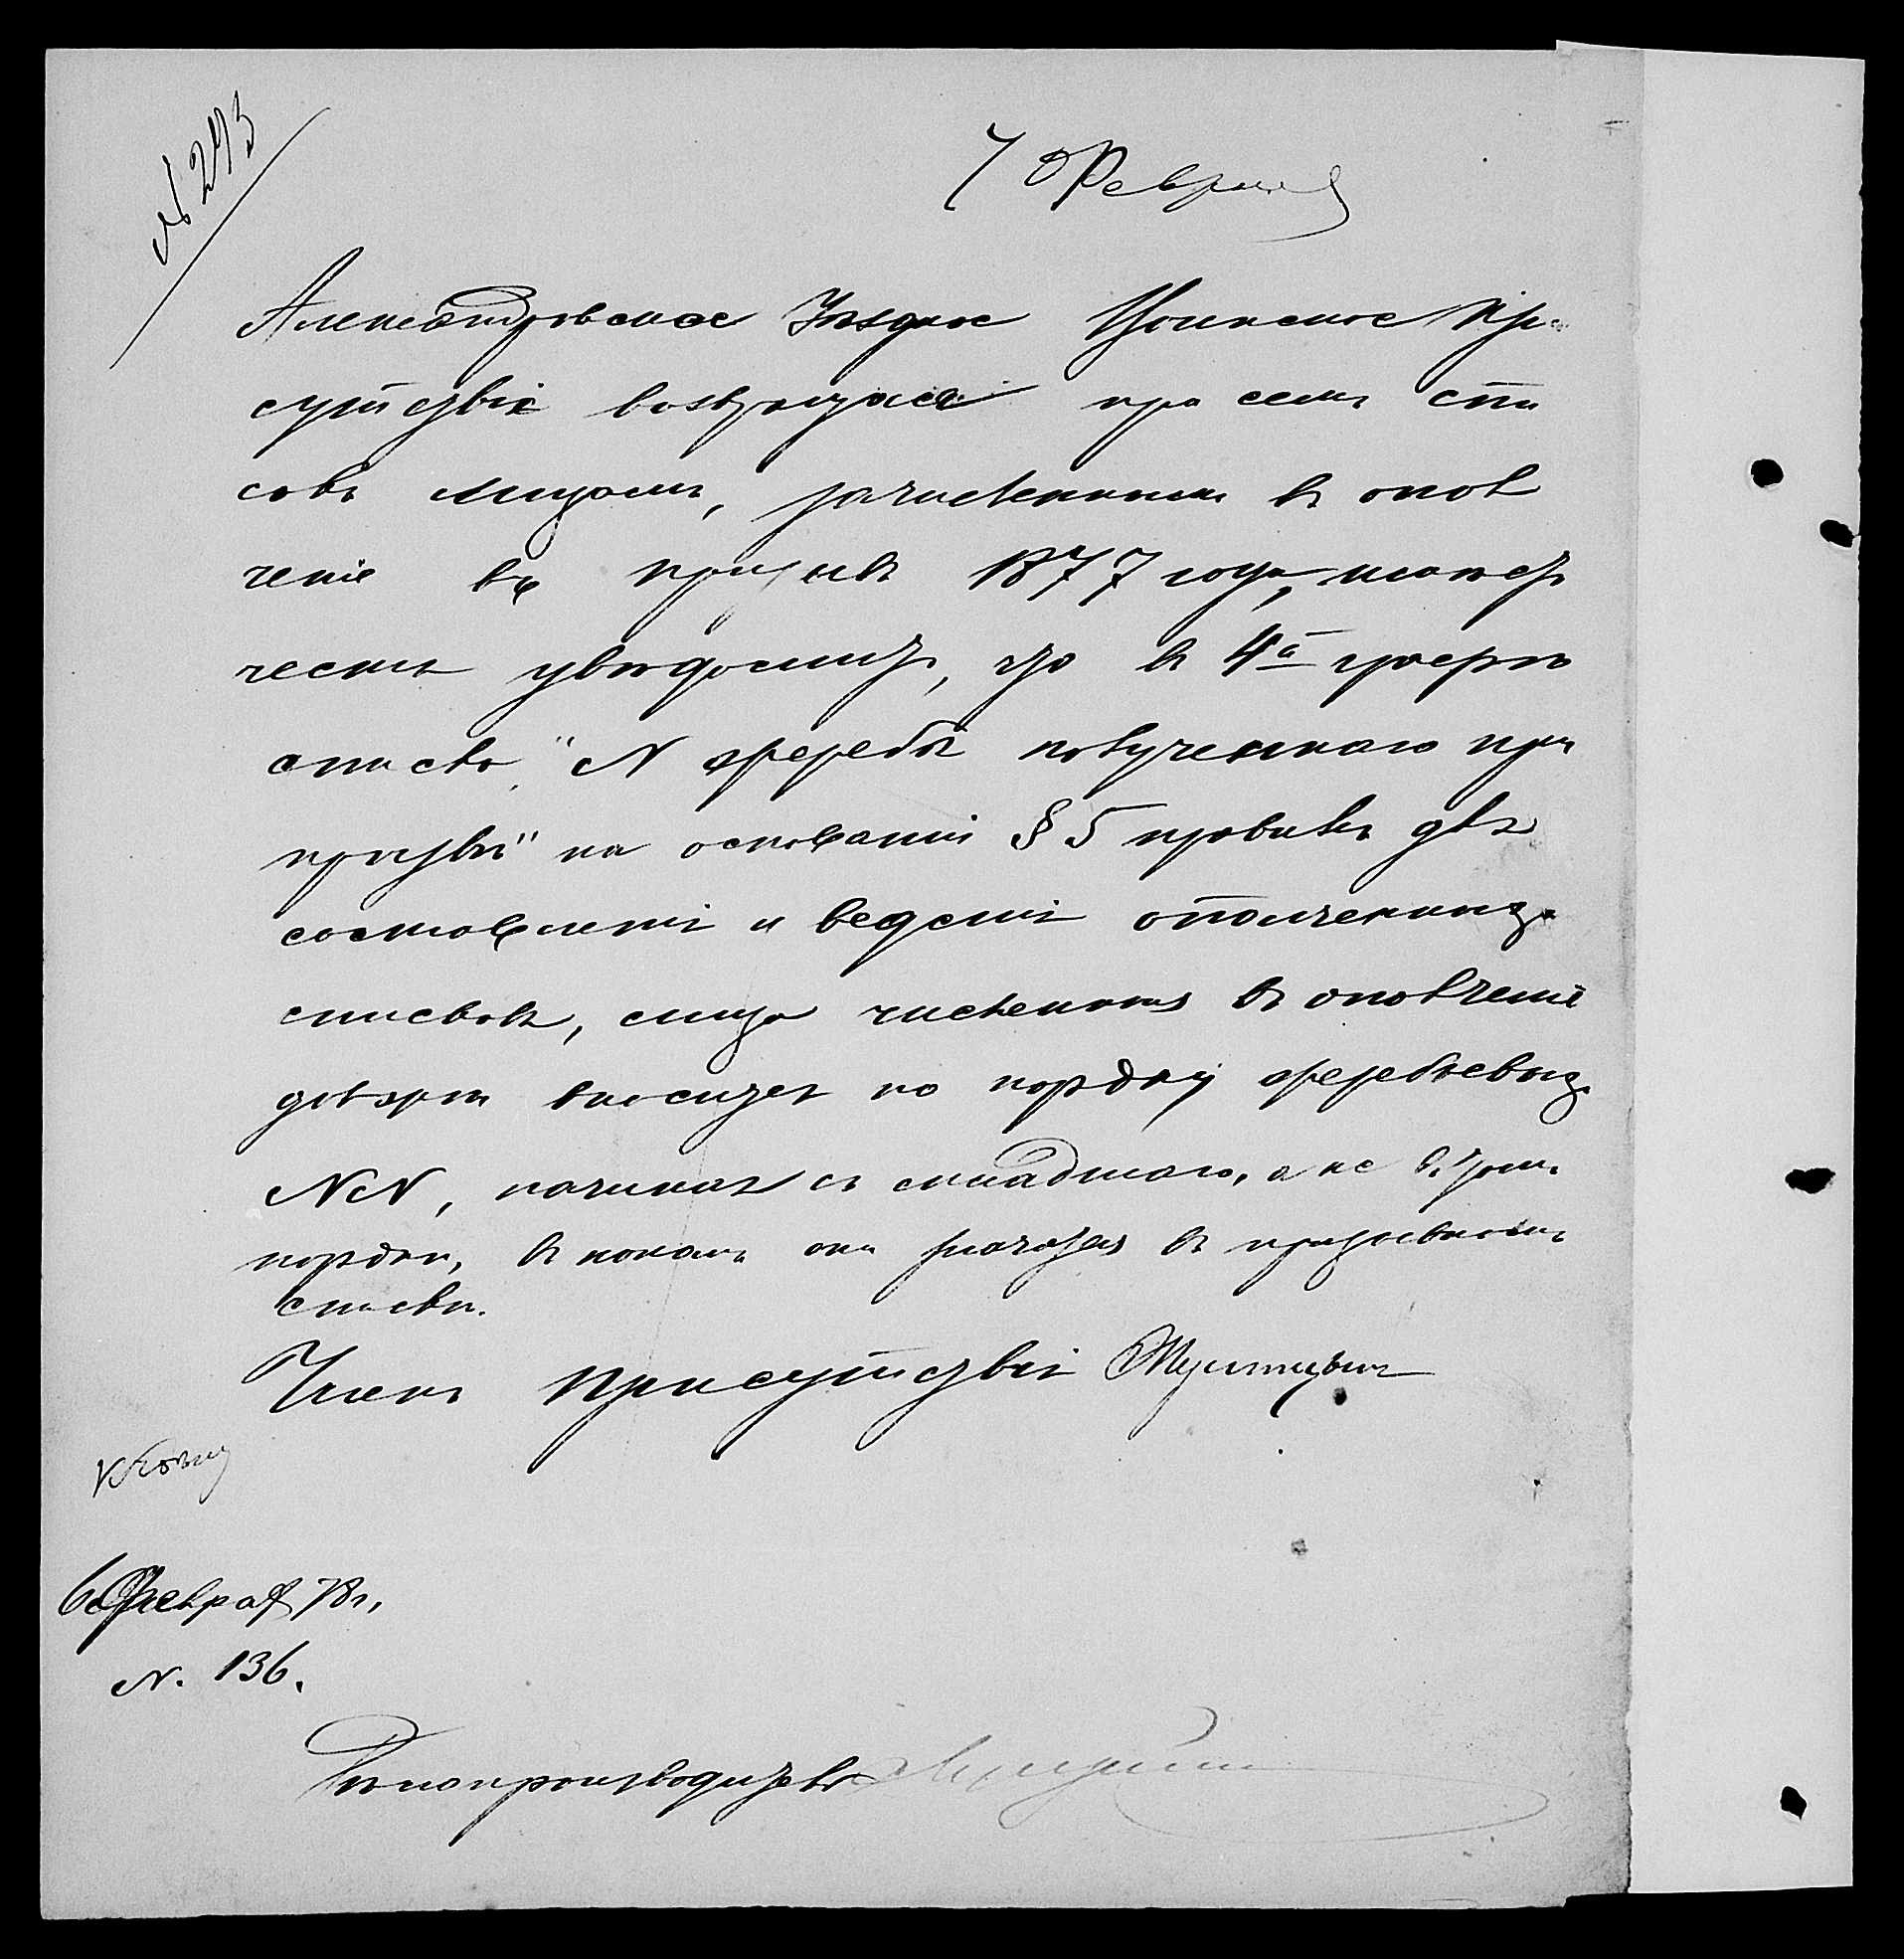 № 293
7 Февраля
Александровское Уѣздное Воинское При
сутствіе возвращая при семъ спи
сокъ лицамъ, зачисленнымъ въ опол
ченіе въ призывъ 1877 года,
увѣдомить, что въ 4й графѣ
списка „N жеребья полученнаго при
призывѣ" на основаніи § 5 правилъ для
составленія и веденія ополченныхъ
списковъ, лица численныя въ ополченіе
должны вносится по порядку жеребьевыхъ
NN, начиная съ младшаго, а не въ томъ
порядкѣ, въ какомъ они значатся въ призывномъ
спискѣ.
Членъ Присутствія
6 Февраля 78 г.
N. 136.
Дѣлопроизводитель